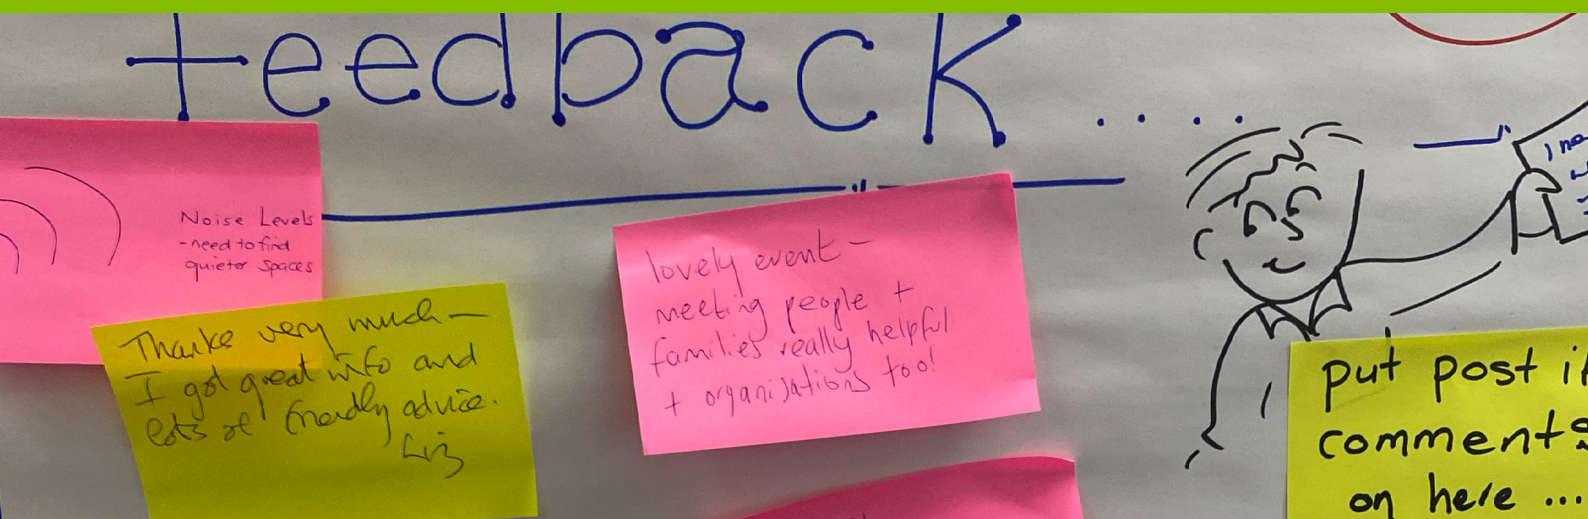 feedback ....
Noise Levels
- need to find
quieter spaces
Thanks very much —
I got great info and
lots of friendly advice.
Liz
lovely event —
meeting people +
families really helpful
+ organisations too!
put post i
comments
on here ...